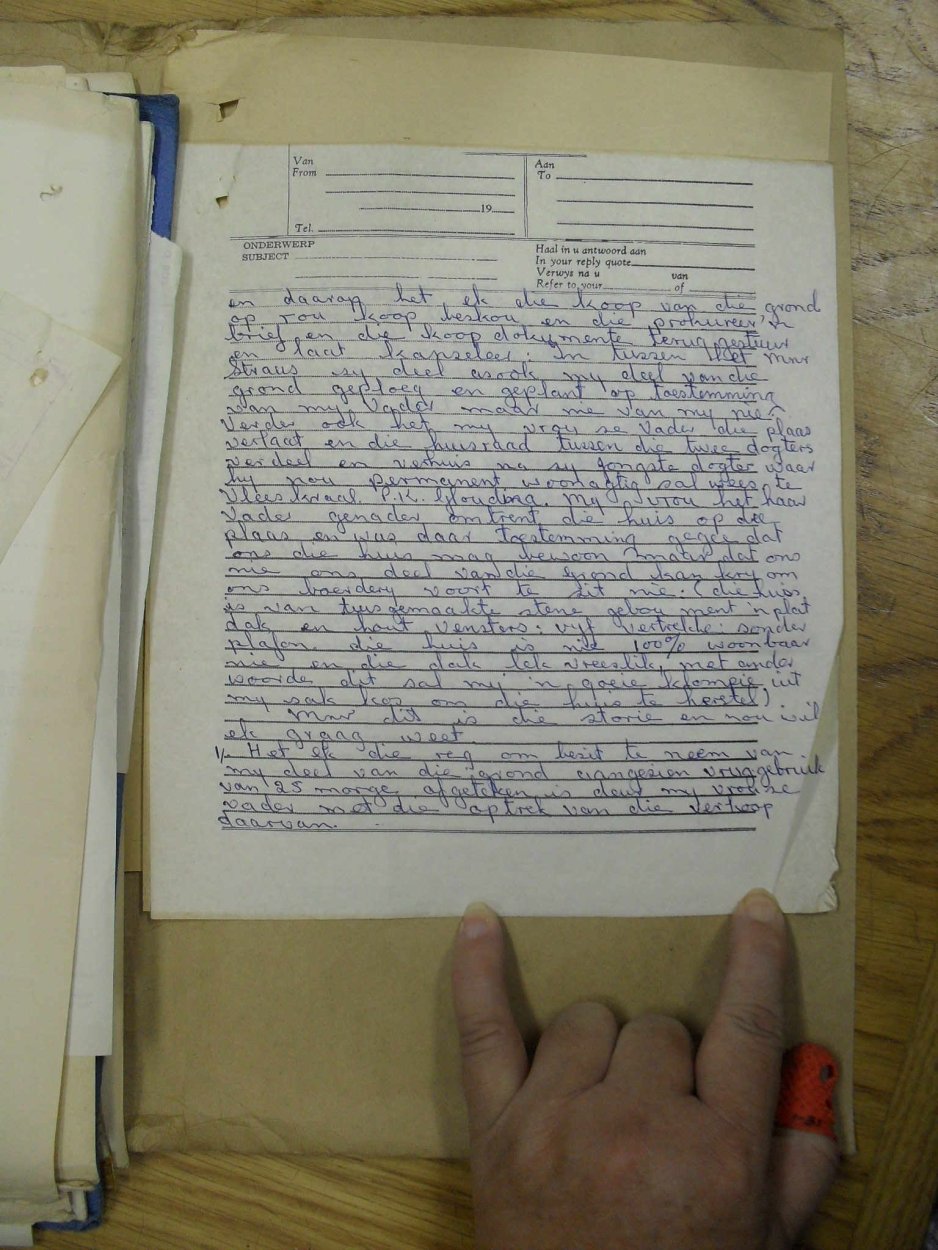 Van
From
19
Tel.
Aan
To
ONDERWERP
SUBJECT
Haal in u antwoord aan
In your reply quote
Verwys na u van
Refer to your of
en daarop het ek die koop van die grond
op rou koop beskou en die prokureur 'n
brief en die koop dokumente terug gestuur
en laat kanseleer. In tussen het mnr
Straus sy deel asook my deel van die
grond geploeg en geplant op toestemming
van my Vader maar nie van my nie
Verder ook het my vrou se Vader die plaas
verlaat en die huisraad tussen die twee dogters
verdeel en verhuis na sy jongste dogter waar
hy nou permanent woonagtig sal wees te
Vleeskraal. P.K. Glouding. My vrou het haar
Vader genader omtrent die huis op die
plaas en was daar toestemming gegee dat
ons die huis mag bewoon maar dat ons
nie ons deel van die grond kan kry om
ons boerdery voort te sit nie. (die huis
is van tuisgemaakte stene gebou met 'n plat
dak en hout vensters: vyf vertrekke: sonder
plafon. die huis is nie 100% woonbaar
nie en die dak lek vreeslik, met ander
woorde dit sal my 'n goeie klompie uit
my sak kos om die huis te herstel)
Mnr dit is die storie en nou wil
ek graag weet
1/. Het ek die reg om besit te neem van
my deel van die grond aangesien vruggebruik
van 25 morge afgeteken is deur my vrou se
vader met die optrek van die verkoop
daarvan.